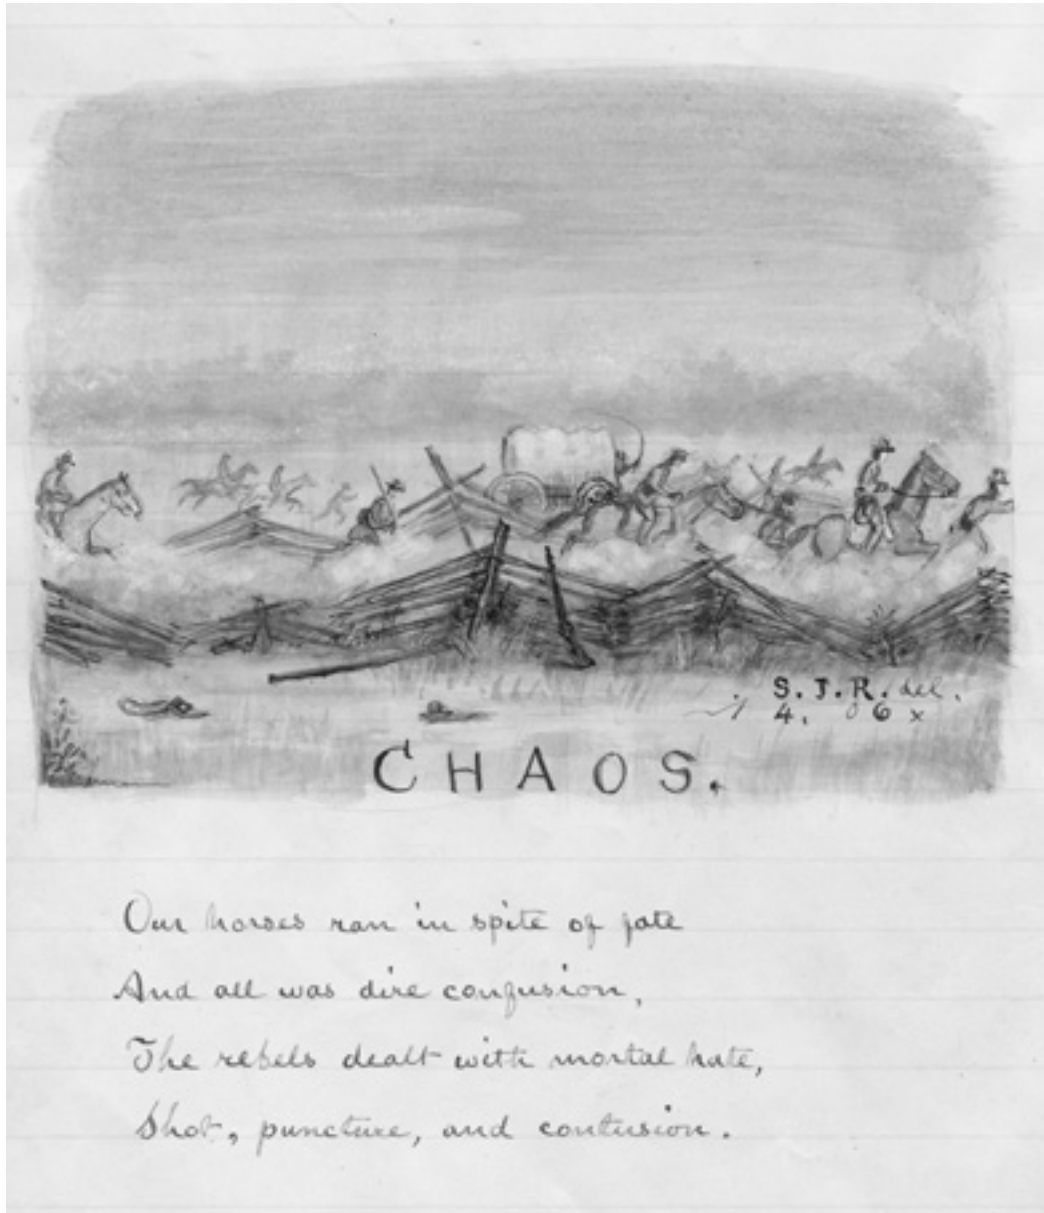 S. J. R. del.
4. 6 x
CHAOS.
Our horses ran in spite of fate
And all was dire confusion,
The rebels dealt with mortal hate,
Shot, puncture, and contusion.